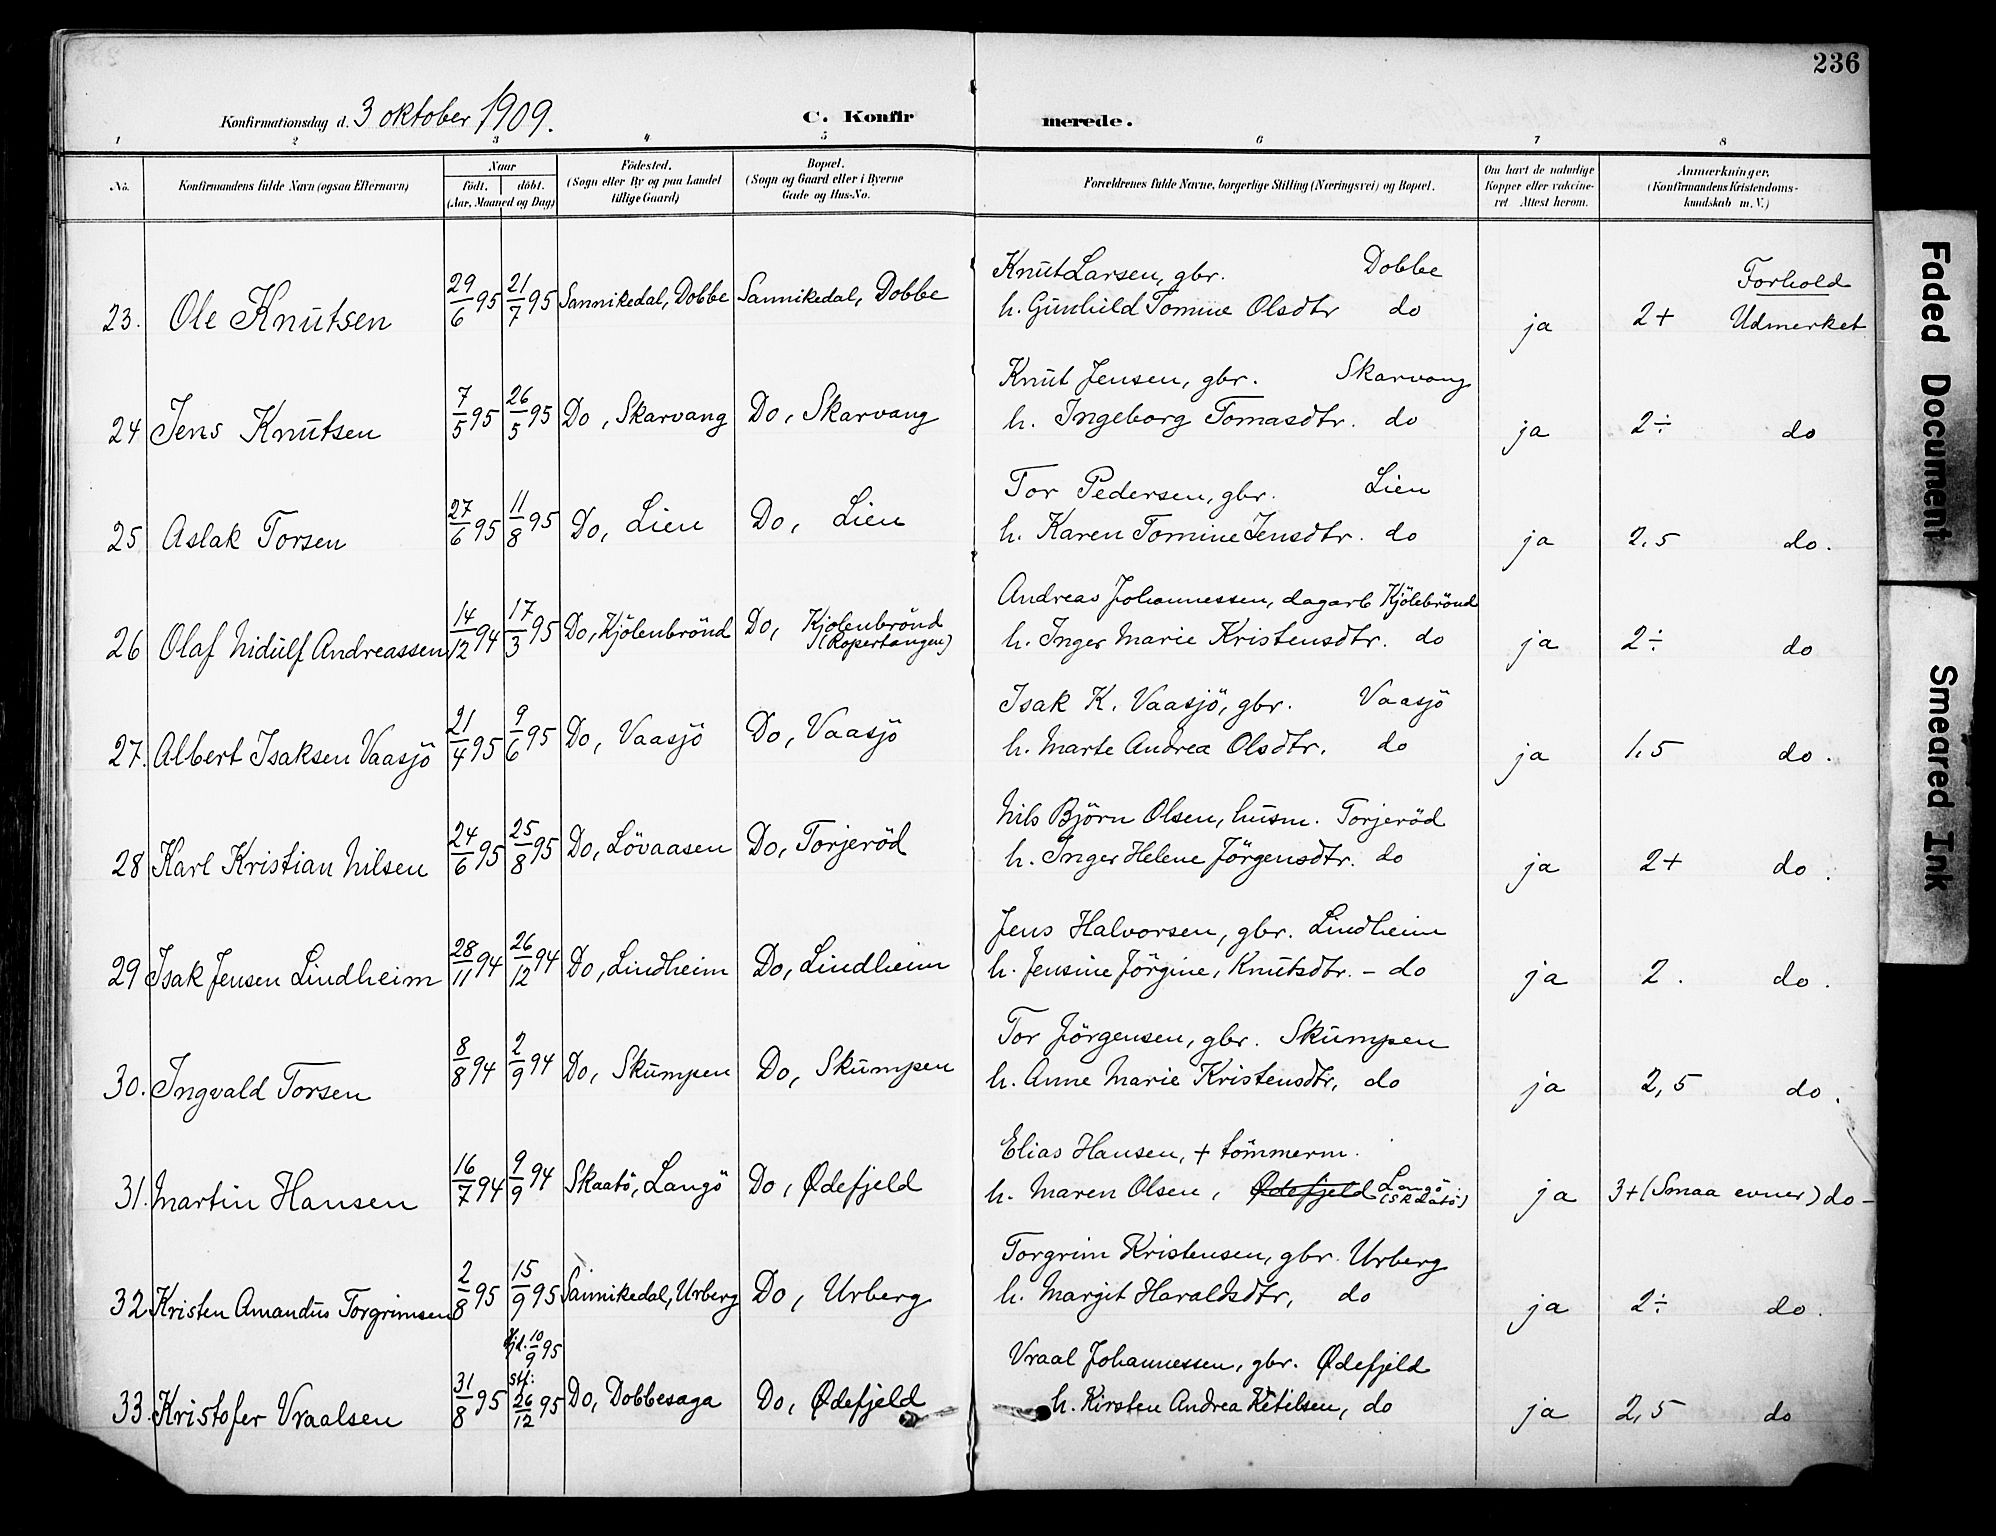 236
Konfirmationsdag d. 3 oktober 1909. C. Konfirmerede.
1 2 3 4 5 6 7 8
No. Konfirmandens fulde Navn (ogsaa Efternavn) Naar födt. döbt. (Aar, Maaned og Dag) Födested. (Sogn eller By og paa Landet tillige Gaard) Bopæl. (Sogn og Gaard eller i Byerne Gade og Hus-No. Forældrenes fulde Navne, borgerlige Stilling (Næringsvei) og Bopæl. Om havt de naturlige Kopper eller vakcineret Attest herom. Anmærkninger, (Konfirmandens Kristendomskundskab m. V.)
Knut Larsen, gbr. Dobbe Forhold
23. Ole Knutsen 29/6 95 21/7 95 Sannikedal, Dobbe Sannikedal, Dobbe h. Gunhild Tomine Olsdtr do ja 2+ Udmerket
Knut Jensen, gbr. Skarvang
24 Jens Knutsen 7/5 95 26/5 95 Do, Skarvang Do, Skarvang h. Ingeborg Tomasdtr. do ja 2÷ do
Tor Pedersen, gbr. Lien
25 Aslak Torsen 27/6 95 11/8 95 Do, Lien Do, Lien h. Karen Tomine Jensdtr. do ja 2,5 do.
Andreas Johannessen, dagarb Kjölebrönd
26 Olaf Nidulf Andreassen 14/12 94 17/3 95 Do, Kjölenbrönd Do, Kjölenbrönd (Ropertangen) h. Inger Marie Kristensdtr. do ja 2÷ do
Isak K. Vaasjö, gbr. Vaasjö
27. Albert Isaksen Vaasjö 21/4 95 9/6 95 Do, Vaasjö Do, Vaasjö h. Marte Andrea Olsdtr. do ja 1,5 do.
Nils Björn Olsen, husm. Torjeröd
28 Karl Kristian Nilsen 24/6 95 25/8 95 Do, Lövaasen Do, Torjeröd h. Inger Helene Jörgensdtr. do ja 2+ do.
Jens Halvorsen, gbr. Lindheim
29 Isak Jensen Lindheim 28/11 94 26/12 94 Do, Lindheim Do, Lindheim h. Jensine Jörgine, Knutsdtr. - do ja 2. do.
Tor Jörgensen, gbr. Skumpen
30. Ingvald Torsen 8/8 94 2/9 94 Do, Skumpen Do, Skumpen h. Anne Marie Kristensdtr, do ja 2,5 do.
Elias Hansen, + tömmerm.
31. Martin Hansen 16/7 94 9/9 94 Skaatö, Langö Do, Ødefjeld h. Maren Olsen, Ødefjeld Langö (Skaatö) ja 3+ (Smaa evner) do-
Torgrim Kristensen, gbr. Urberg
32 Kristen Amandus Torgrimsen 2/8 95 15/9 95 Sannikedal, Urberg Do, Urberg h. Margit Haraldsdtr, do ja 2÷ do.
Vraal Johannessen, gbr. Ødefjeld
33. Kristofer Vraalsen 31/8 95 hjd. 10/9 95 stf: 26/12 95 Do, Dobbesaga Do, Ødefjeld h. Kirsten Andrea Ketilsen, do ja 2,5 do
Faded Document
Smeared Ink